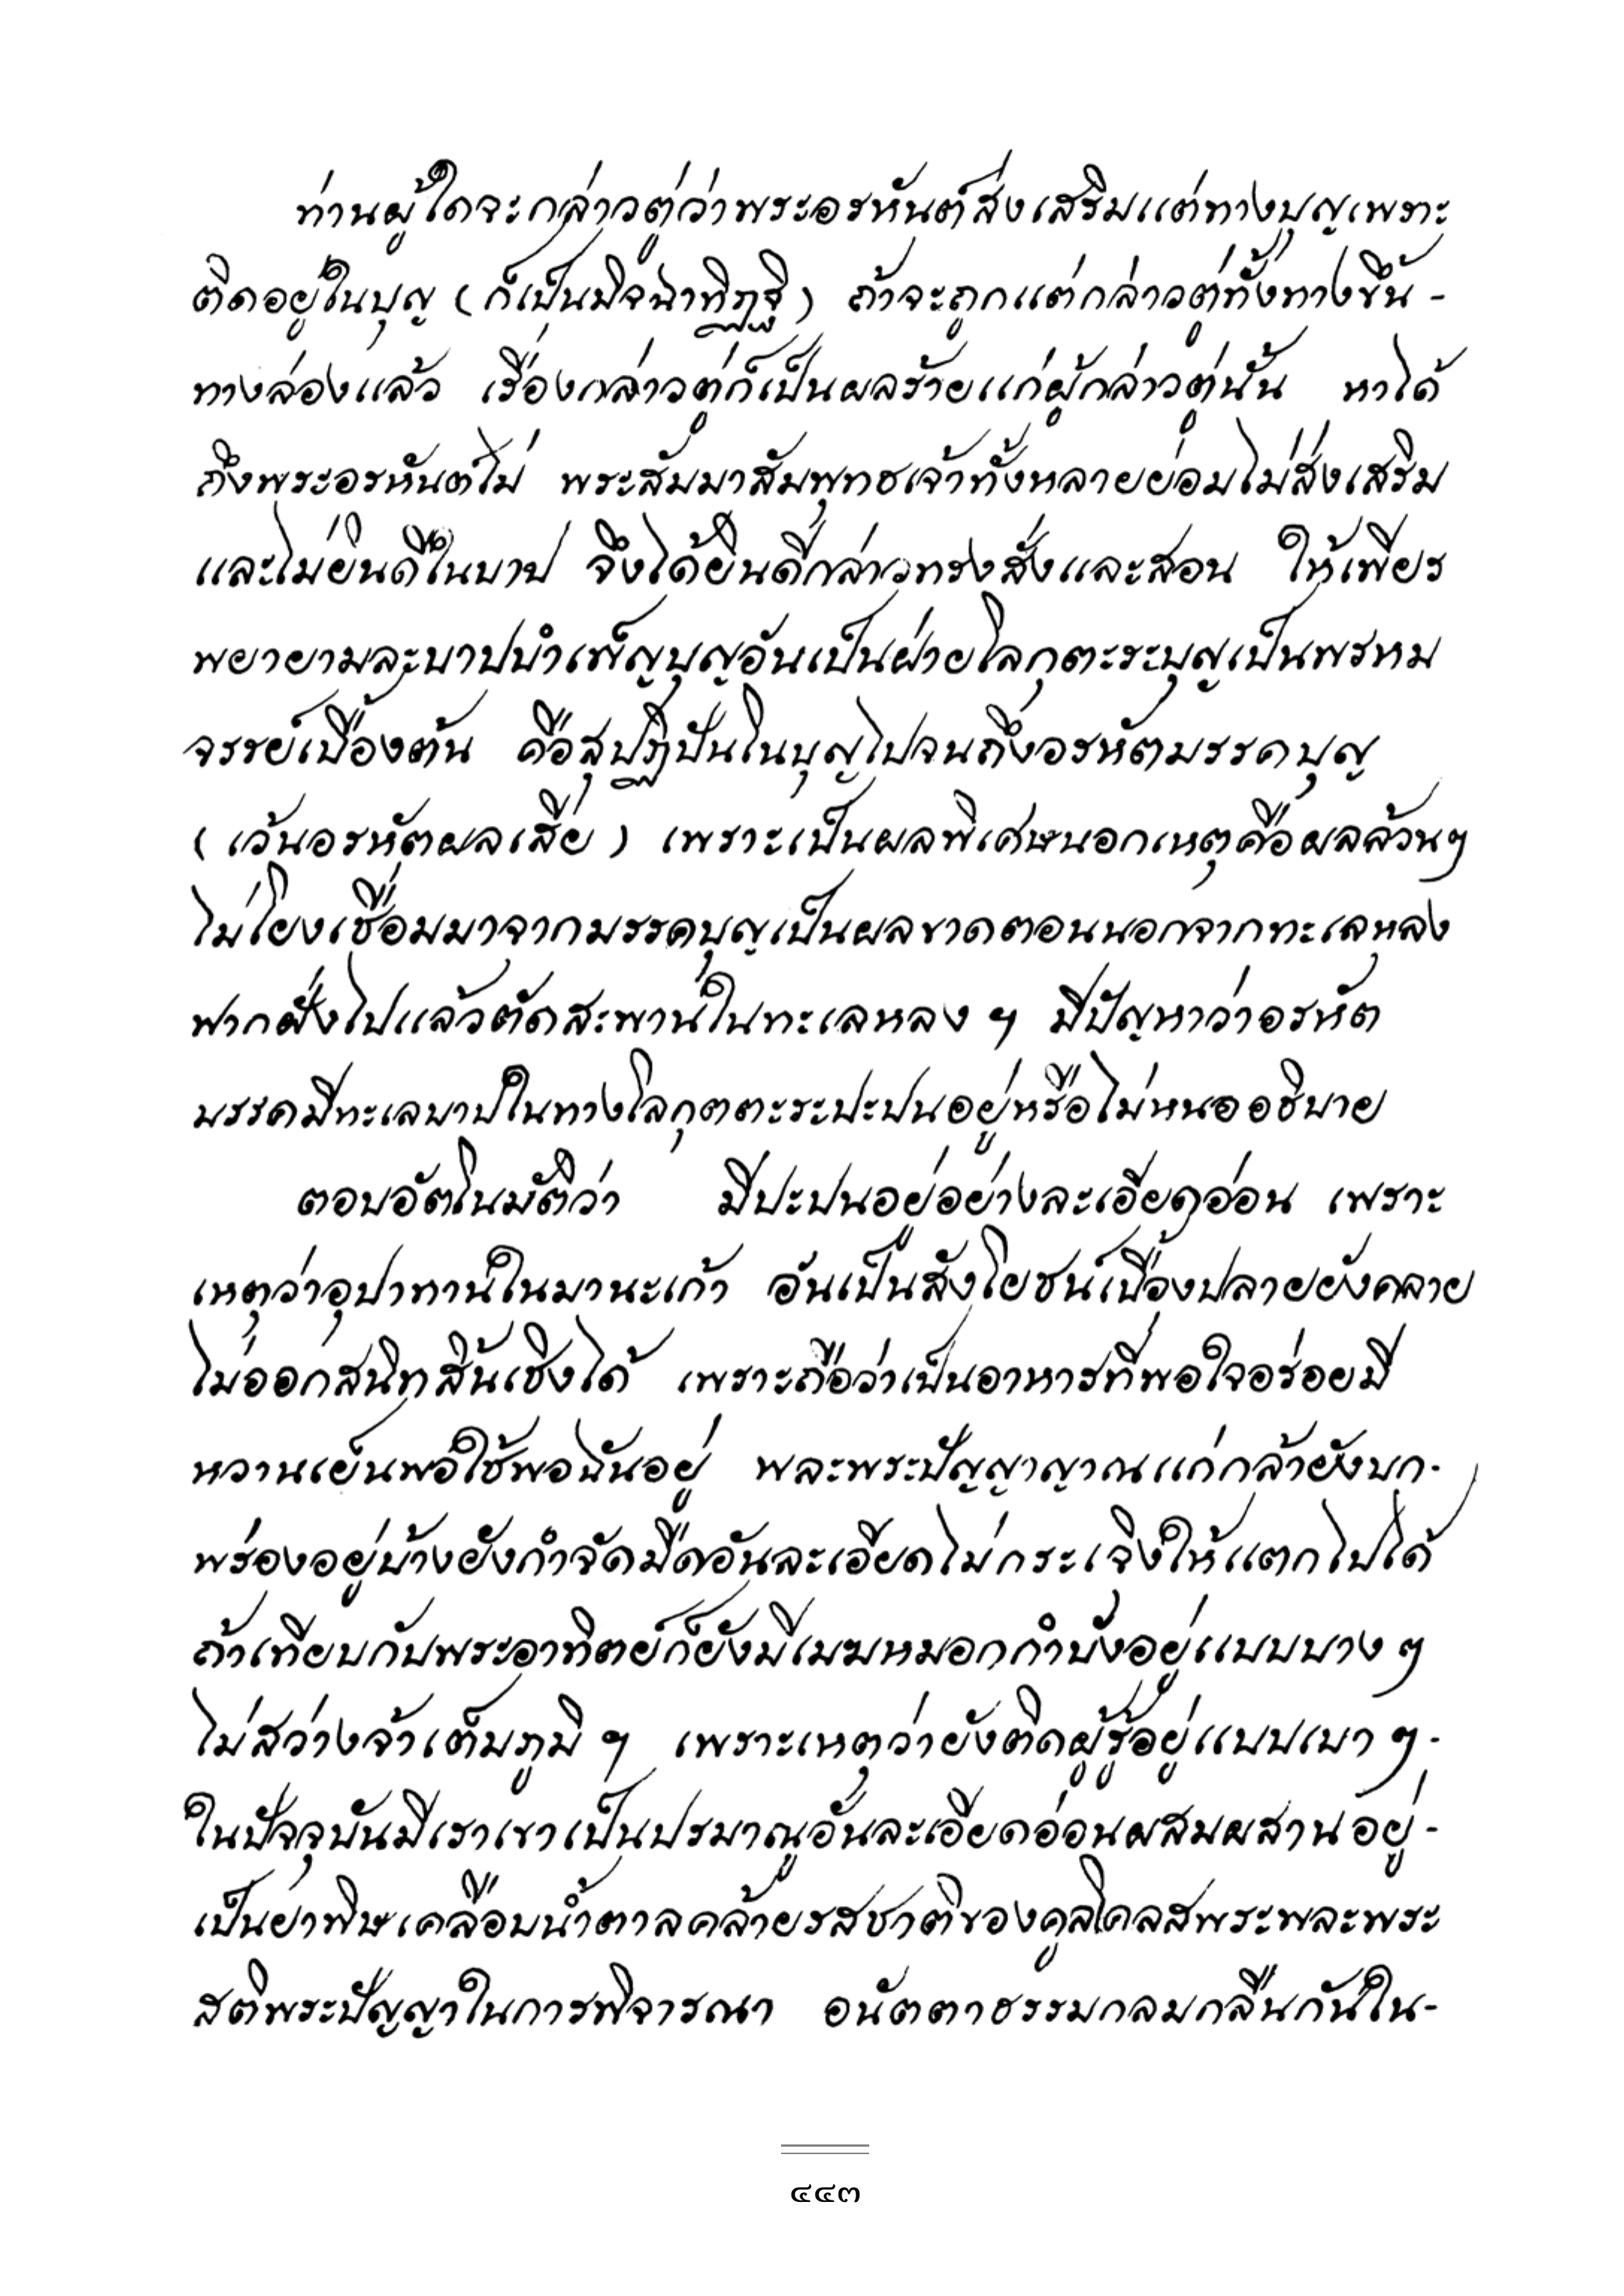 ท่านผู้ใดจะกล่าวตู่ว่าพระอรหันต์ส่งเสริมแต่ทางบุญเพราะ
ติดอยู่ในบุญ (ก็เป็นมิจฉาทิฏฐิ) ถ้าจะถูกแต่กล่าวตู่ทั้งทางขึ้น -
ทางล่องแล้ว เรื่องกล่าวตู่ก็เป็นผลร้ายแก่ผู้กล่าวตู่นั้น หาได้
ถึงพระอรหันต์ไม่ พระสัมมาสัมพุทธเจ้าทั้งหลายย่อมไม่ส่งเสริม
และไม่ยินดีในบาป จึงได้ยินดีกล่าวทรงสั่งและสอน ให้เพียร
พยายามละบาปบำเพ็ญบุญอันเป็นฝ่ายโลกุตะระบุญเป็นพรหม
จรรย์เบื้องต้น คือสุปฏิปันโนบุญไปจนถึงอรหัตมรรคบุญ
(เว้นอรหัตผลเสีย) เพราะเป็นผลพิเศษนอกเหตุคือผลล้วนๆ
ไม่โยงเชื่อมมาจากมรรคบุญเป็นผลขาดตอนนอกจากทะเลหลง
ฟากฝั่งไปแล้วตัดสะพานในทะเลหลง ฯ มีปัญหาว่าอรหัต
มรรคมีทะเลบาปในทางโลกุตตะระปะปนอยู่หรือไม่หนออธิบาย
ตอบอัตโนมัติว่า มีปะปนอยู่อย่างละเอียดอ่อน เพราะ
เหตุว่าอุปาทานในมานะเก้า อันเป็นสังโยชน์เบื้องปลายยังคลาย
ไม่ออกสนิทสิ้นเชิงได้ เพราะถือว่าเป็นอาหารที่พอใจอร่อยมี
หวานเย็นพอใช้พอฉันอยู่ พละพระปัญญาญาณแก่กล้ายังบก -
พร่องอยู่บ้างยังกำจัดมืดอันละเอียดไม่กระเจิงให้แตกไปได้
ถ้าเทียบกับพระอาทิตย์ก็ยังมีเมฆหมอกกำบังอยู่แบบบาง ๆ
ไม่สว่างจ้าเต็มภูมิ ฯ เพราะเหตุว่ายังติดผู้รู้อยู่แบบเบา ๆ -
ในปัจจุบันมีเราเขาเป็นปรมาณูอันละเอียดอ่อนผสมผสานอยู่ -
เป็นยาพิษเคลือบน้ำตาลคล้ายรสชาติของคูลโคลสพระพละพระ
สติพระปัญญาในการพิจารณา อนัตตาธรรมกลมกลืนกันใน -
๔๔๓